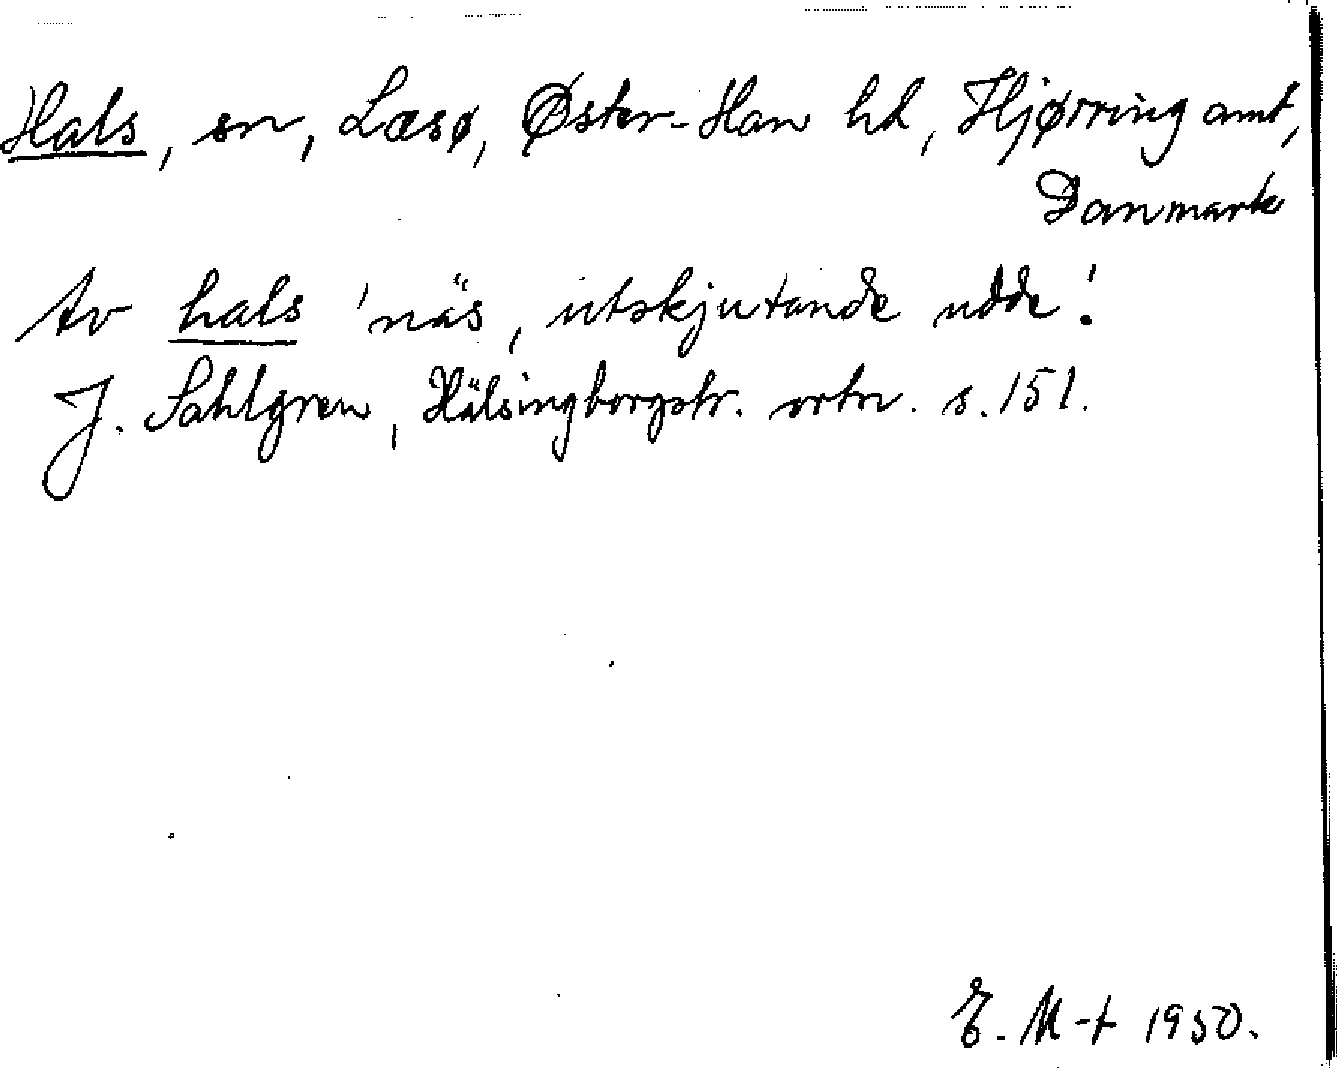 Hals, sn, Læsø, Øster-Han hd, Hjørring amt,
Danmark
Av hals 'näs, utskjutande udde'.
J. Sahlgren, Hälsingborgstr. ortn. s. 151.
E. M-t 1950.